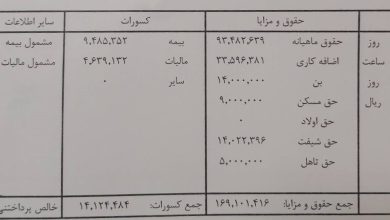 حقوق و مزایا کسورات سایر اطلاعات
روز حقوق ماهیانه ۹۳,۴۸۲,۶۳۹ بیمه ۹,۴۸۵,۳۵۲ مشمول بیمه
ساعت اضافه کاری ۳۳,۵۹۶,۳۸۱ مالیات ۴,۶۳۹,۱۳۲ مشمول مالیات
روز بن ۱۴,۰۰۰,۰۰۰ سایر ۰
ریال حق مسکن ۹,۰۰۰,۰۰۰
حق اولاد ۰
حق شیفت ۱۴,۰۲۲,۳۹۶
حق تاهل ۵,۰۰۰,۰۰۰
جمع حقوق و مزایا: ۱۶۹,۱۰۱,۴۱۶ جمع کسورات: ۱۴,۱۲۴,۴۸۴ خالص پرداختنی